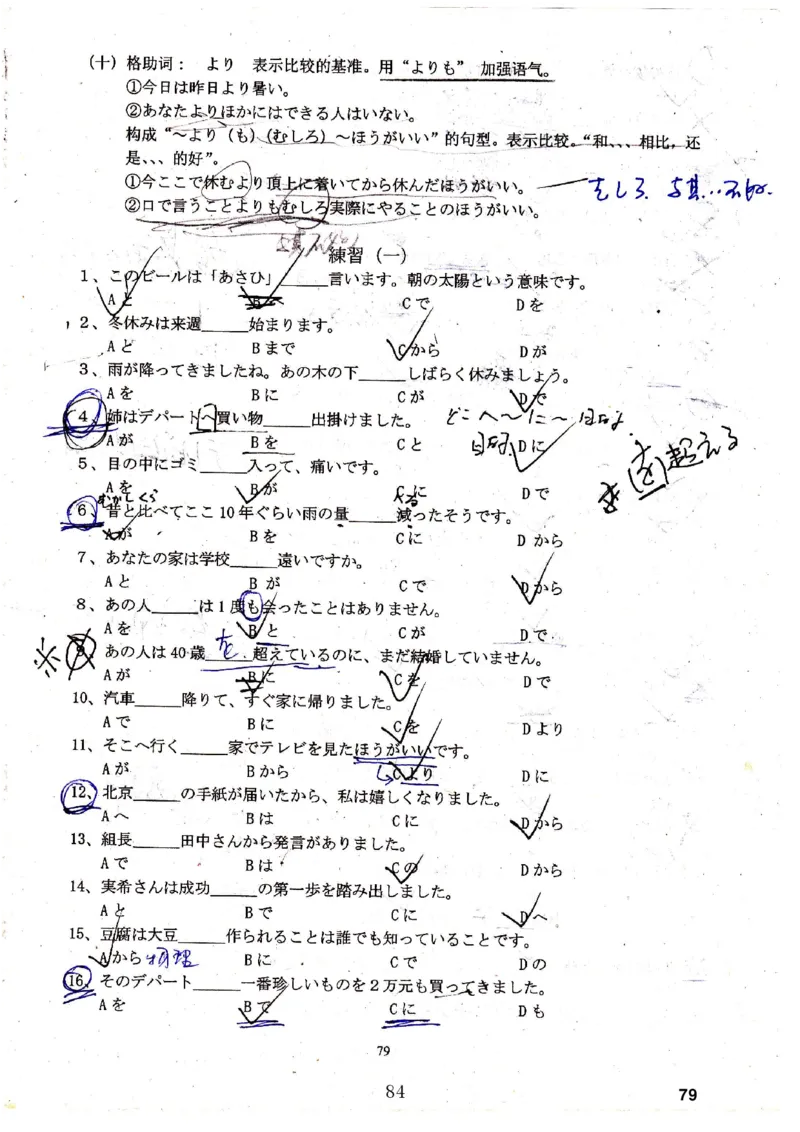 (十) 格助词： より 表示比较的基准。用“よりも” 加强语气。
①今日は昨日より暑い。
②あなたよりほかにはできる人はいない。
构成“～より（も）(むしろ) ～ほうがいい”的句型。表示比较。“和、、、相比，还
是、、、的好”。
①今ここで休むより頂上に着いてから休んだほうがいい。
むしろ 与其...不如.
②口で言うことよりもむしろ実際にやることのほうがいい。
練習（一）
1、このビールは「あさひ」_____言います。朝の太陽という意味です。
Aと B Cで Dを
2、冬休みは来週_____始まります。
Aと Bまで Cから Dが
3、雨が降ってきましたね。あの木の下_____しばらく休みましょう。
Aを Bに Cが Dで
4、姉はデパートへ買い物_____出掛けました。
どこへ～に～目的
Aが Bを Cと Dに
目的
5、目の中にゴミ_____入って、痛いです。
を超える
Aを Bが Cに Dで
むかしくら
6、昔と比べてここ10年ぐらい雨の量_____減ったそうです。
Aが Bを Cに Dから
7、あなたの家は学校_____遠いですか。
Aと Bが Cで Dから
8、あの人_____は1度も会ったことはありません。
Aを Bと Cが D.で
9、あの人は40歳_____超えているのに、まだ結婚していません。
を
Aが Bに Cを Dで
10、汽車_____降りて、すぐ家に帰りました。
Aで Bに Cを Dより
11、そこへ行く_____家でテレビを見たほうがいいです。
Aが Bから Cより Dに
12、北京_____の手紙が届いたから、私は嬉しくなりました。
Aへ Bは Cに Dから
13、組長_____田中さんから発言がありました。
Aで Bは Cの Dから
14、実希さんは成功_____の第一歩を踏み出しました。
Aと Bで Cに Dへ
15、豆腐は大豆_____作られることは誰でも知っていることです。
Aから 物理 Bに Cで Dの
16、そのデパート_____一番珍しいものを2万元も買ってきました。
Aを Bで Cに Dも
79
84
79